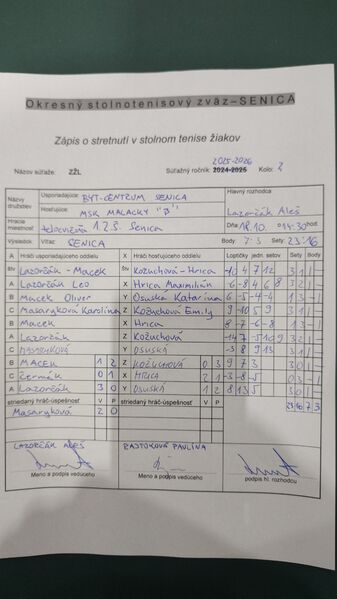 Okresný stolnotenisový zväz – SENICA
Zápis o stretnutí v stolnom tenise žiakov
2025-2026
Názov súťaže: ZŽL Súťažný ročník: 2024-2025 Kolo: 2
Názvy družstiev Usporiadajúce: BYT-CENTRUM SENICA Hlavný rozhodca
Hosťujúce: MSK MALACKY "B" Lazorčák Aleš
Hracia miestnosť telocvičňa 1.ZŠ. Senica Dňa 18.10. o 14:30 hod
Výsledok Víťaz: SENICA Body 7:3 Sety 23:16
A Hráči usporiadajúceho oddielu X Hráči hosťujúceho oddielu Loptičky jedn. setov Sety Body
štv Lazorčák - Macek štv Kožuchová - Hrica -10 4 7 12 3 1 1 -
A Lazorčák Leo X Hrica Maximilián 3 2 1 -
B Macek Oliver Y Osuská Katarína 1 3 - 1
C Masaryková Karolína Z Kožuchová Emily 9 -10 5 9 3 1 1 -
B Macek X Hrica 8 -7 -6 -8 1 3 - 1
A Lazorčák Z Kožuchová 3 2 1 -
C MASARYKOVÁ Y OSUSKÁ -3 8 9 13 3 1 1 -
B MACEK 1 2 Z KOŽUCHOVÁ 0 3 9 7 3 3 0 1 -
C Čermák 0 1 X HRICA 2 1 -3 -8 -5 0 3 - 1
A Lazorčák 3 0 Y OSUSKÁ 1 2 8 13 5 3 0 1 -
striedaný hráč-úspešnosť V P striedaný hráč-úspešnosť V P 23 16 7 3
Masaryková 2 0
LAZORČÁK ALEŠ BAJTOKOVÁ PAULÍNA
Meno a podpis vedúceho Meno a podpis vedúceho podpis hl. rozhodcu